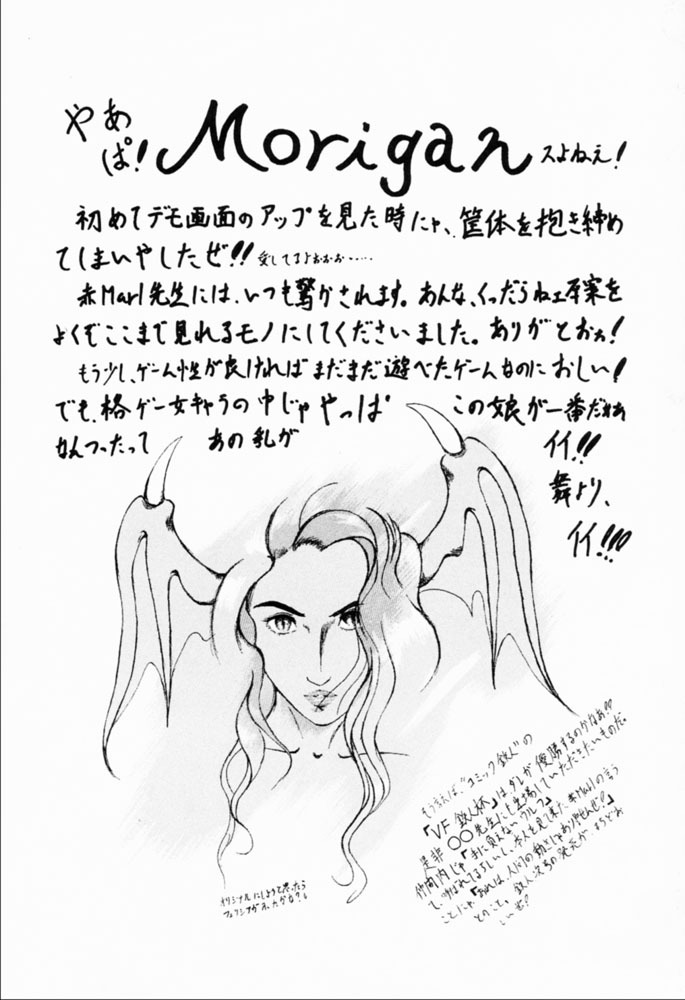 やあ
ぱ！ Morigan スよねえ！
初めてデモ画面のアップを見た時にゃ、筐体を抱き締め
てしまいやしたぜ!! 愛してるよおおお……
赤Marl先生には、いつも驚かされます。あんな、くっだらねェ原案を
よくぞここまで見れるモノにしてくださいました。ありがとおォ！
もう少し、ゲーム性が良ければまだまだ遊べたゲームなのにおしい！
でも、格ゲー女キャラの中じゃやっぱ この娘が一番だねぇ
なんつったって あの乳が イイ!!
舞より、
イイ!!!
もうすぐ"コミック鉄人"の
「VF鉄人杯」は、ダレが優勝するのかなあ
是非〇〇先生にも
竹間内じゃ「手に負えないウルフ」
て、呼ばれてるらしいし、本人を見て来た赤Marlの言う
ことにゃ「あれは、人間の動きじゃありやせんぜ！」
とのこと。鉄人
オリジナルにしようと思ったら